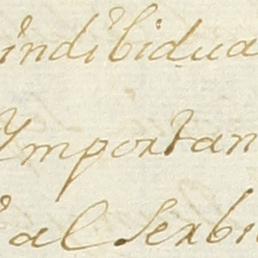 indibidua
Ymportan
al Serbi